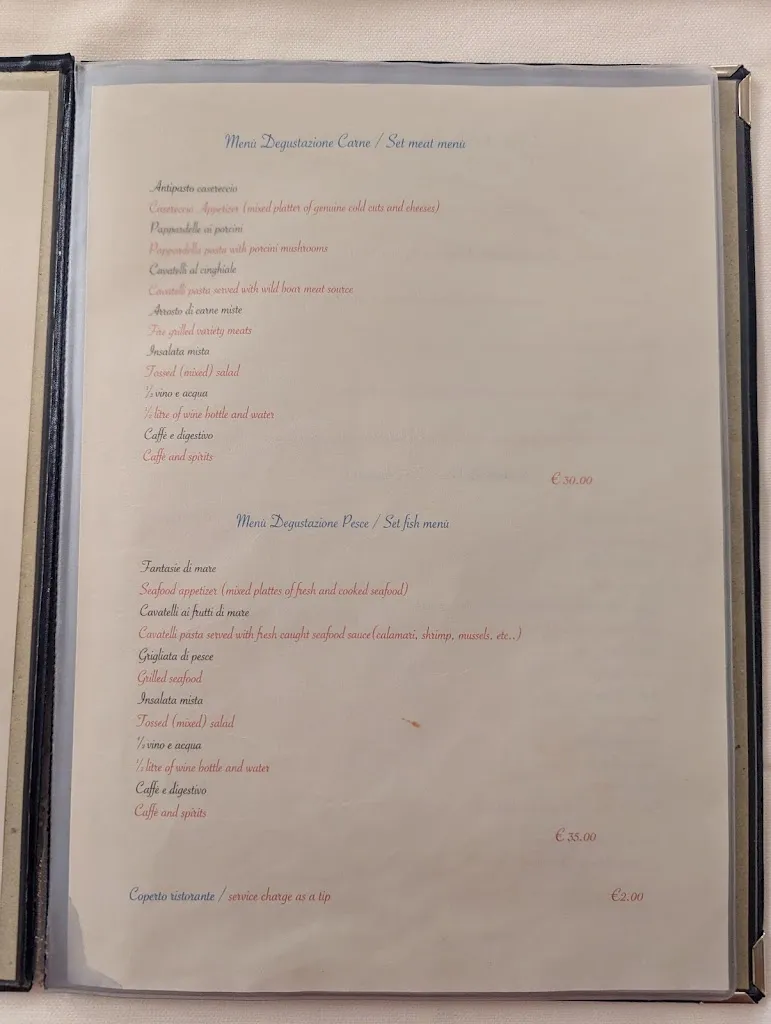 Menù Degustazione Carne / Set meat menù
Antipasto casereccio
Casereccio Appetizer (mixed platter of genuine cold cuts and cheeses)
Pappardelle ai porcini
Pappardella pasta with porcini mushrooms
Cavatelli al cinghiale
Cavatelli pasta served with wild boar meat source
Arrosto di carne miste
Fire grilled variety meats
Insalata mista
Tossed (mixed) salad
½ vino e acqua
½ litre of wine bottle and water
Caffè e digestivo
Caffè and spirits
€ 30.00
Menù Degustazione Pesce / Set fish menù
Fantasie di mare
Seafood appetizer (mixed plattes of fresh and cooked seafood)
Cavatelli ai frutti di mare
Cavatelli pasta served with fresh caught seafood sauce(calamari, shrimp, mussels, etc..)
Grigliata di pesce
Grilled seafood
Insalata mista
Tossed (mixed) salad
½ vino e acqua
½ litre of wine bottle and water
Caffè e digestivo
Caffè and spirits
€ 35.00
Coperto ristorante / service charge as a tip €2.00